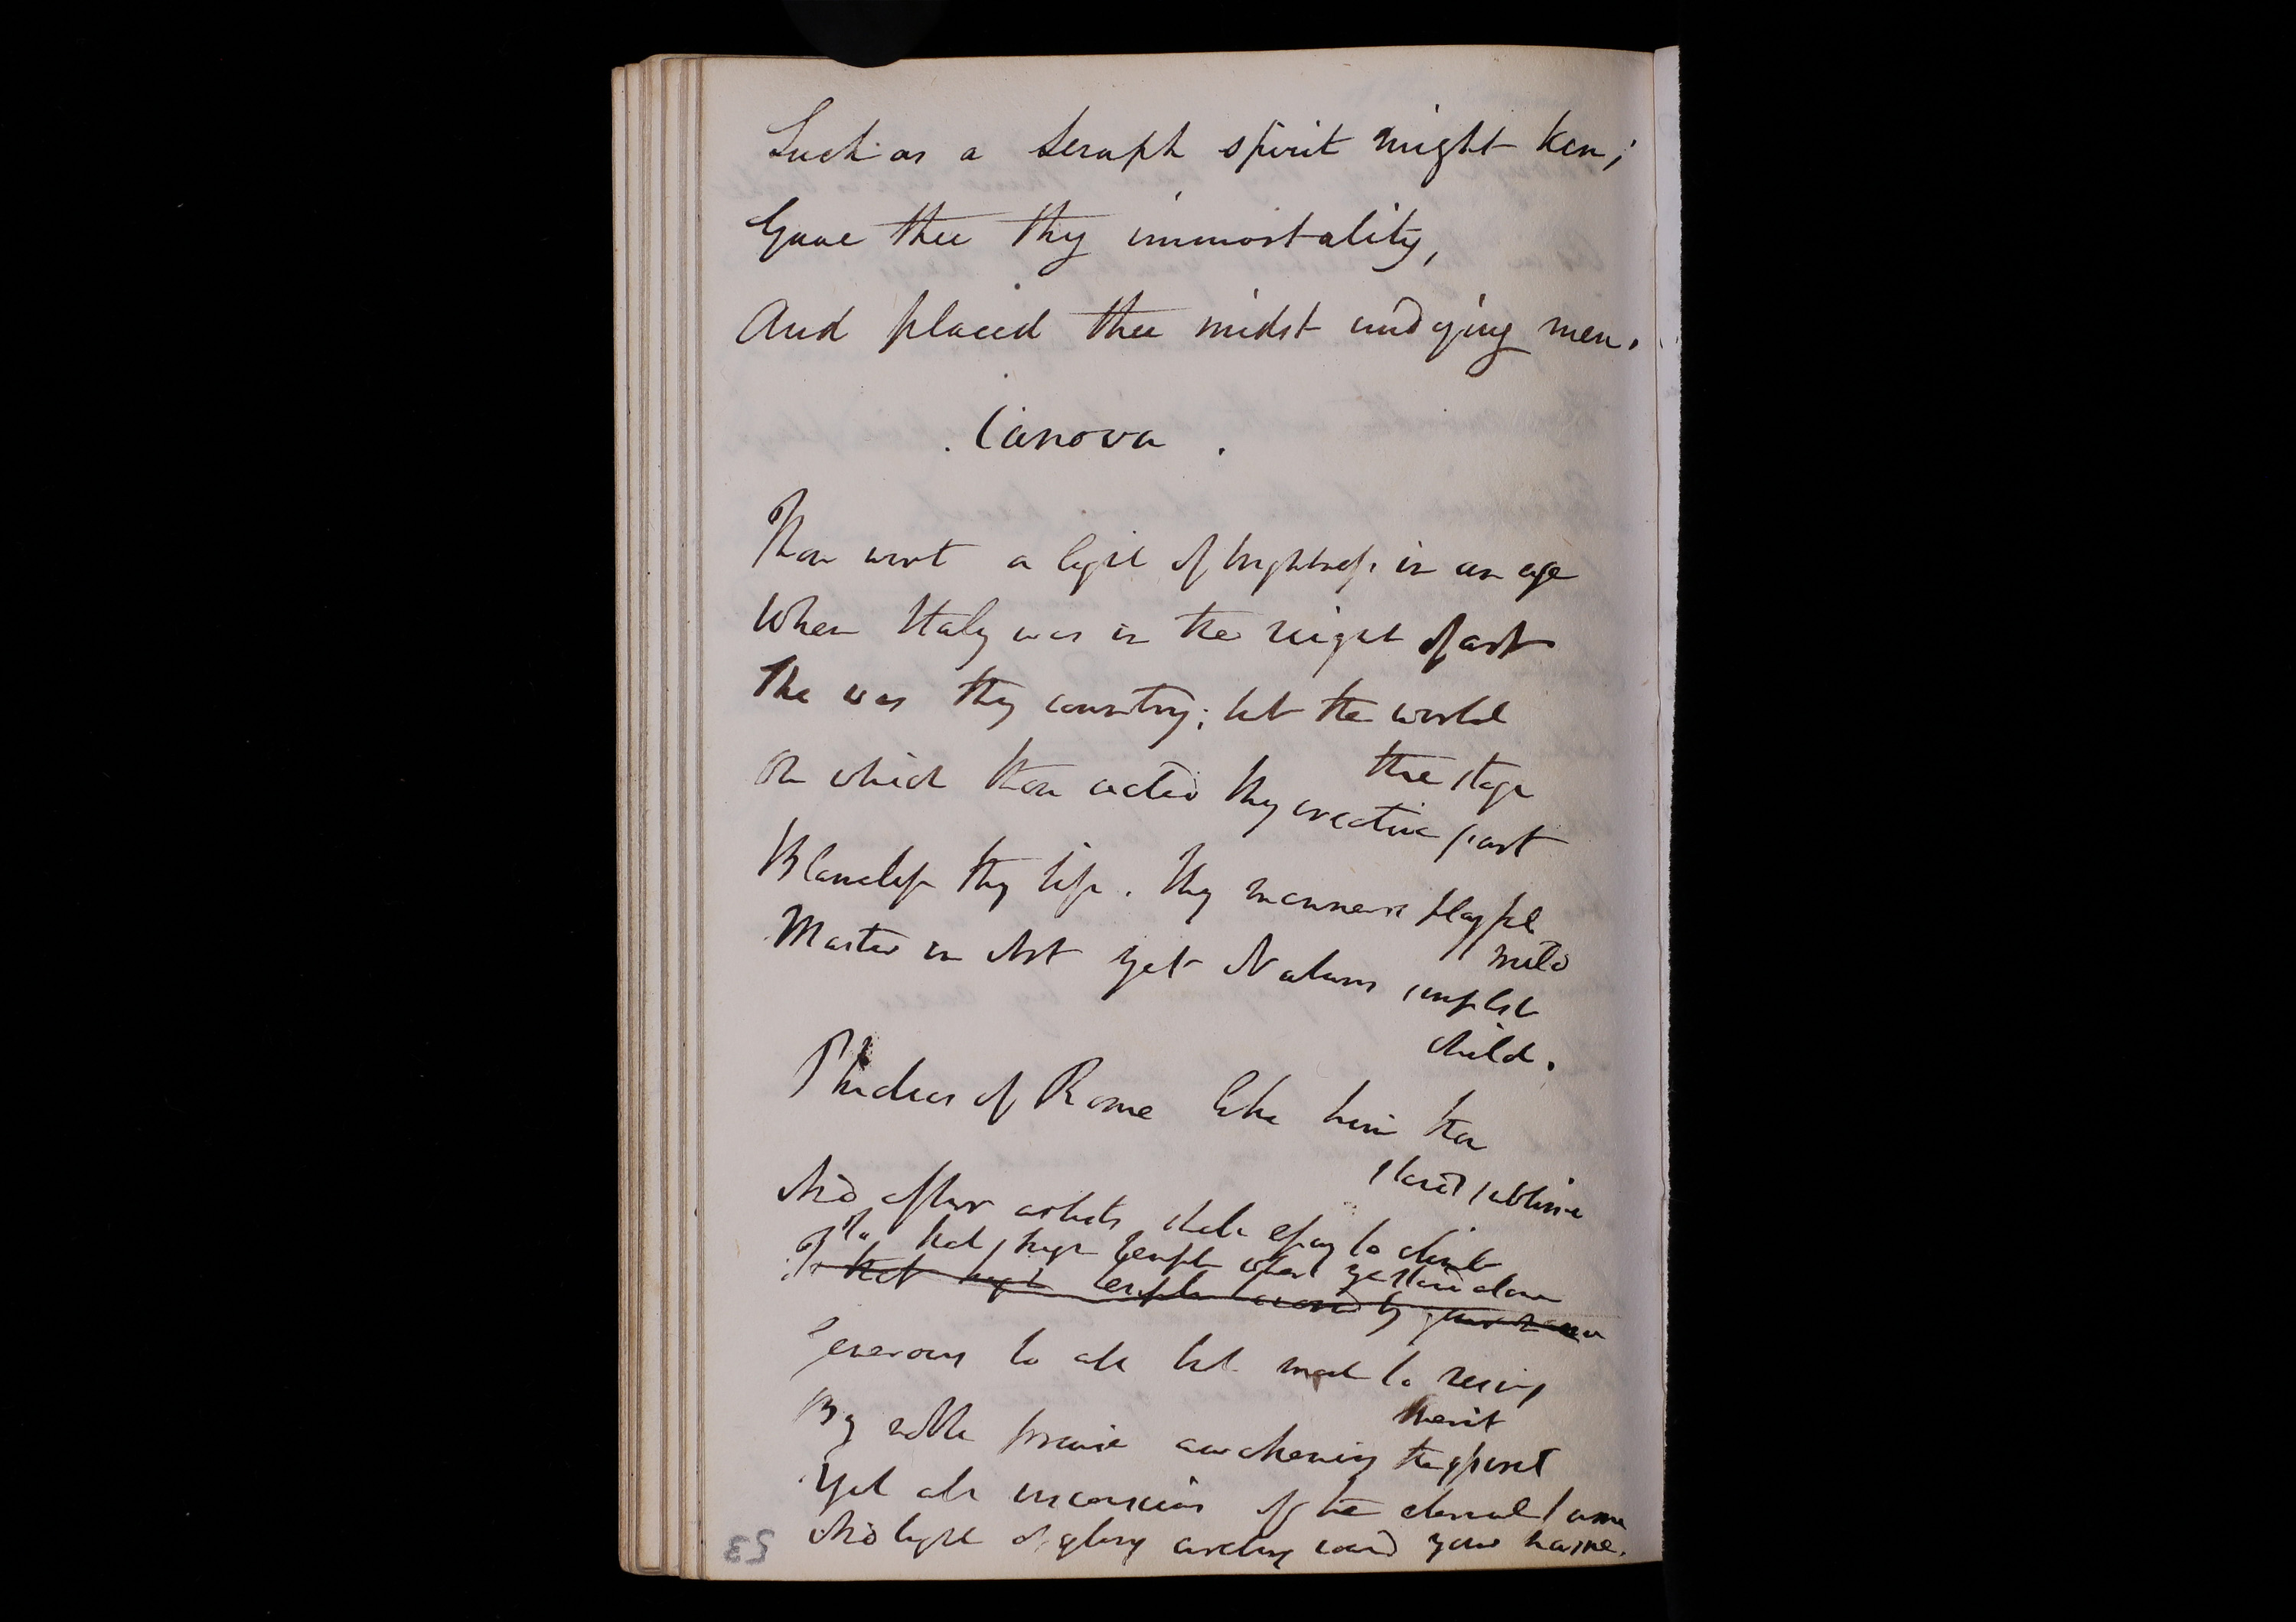 Such as a Seraph spirit might ken;
Gave thee thy immortality,
And placed thee midst undying men.
. Canova .
Thou wert a light of brightness in an age
When Italy was in the night of art
She was thy country; but the world
the stage
On which thou acted thy creative part
Blameless thy life. Thy manners playful
mild
Master in Art yet Natures simplest
child.
Phidias of Rome like him thou
stand sublime
And after artists shall essay to climb
To that high temple where ye stand alone
To that high temple by your
Generous to all but most to rising
merit
By noble praise awakening the spirit
Yet all unconscious of the eternal fame
And light of glory circling round your name.
53